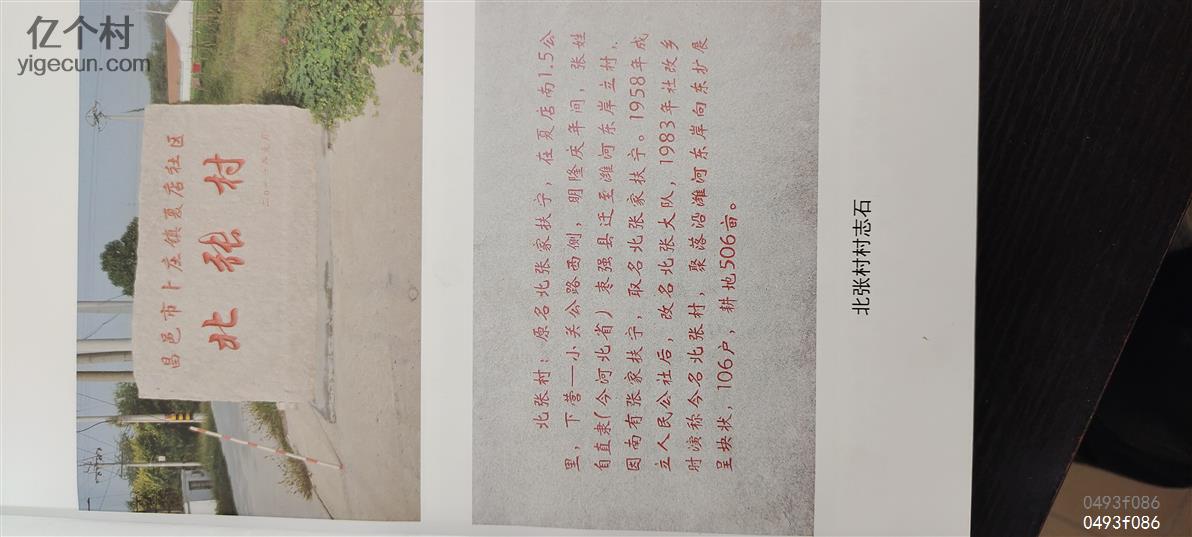 亿个村
yigecun.com
昌邑市卜庄镇夏店社区
北张村
北张村：原名北张家扶宁，在夏店南1.5公
里，下营—小关公路西侧，明隆庆年间，张姓
自直隶(今河北省)枣强县迁至潍河东岸立村，
因南有张家扶宁，取名北张家扶宁。1958年成
立人民公社后，改名北张大队，1983年社改乡
时演称今名北张村，聚落沿潍河东岸向东扩展
呈块状，106户，耕地506亩。
北张村村志石
0493f086
0493f086